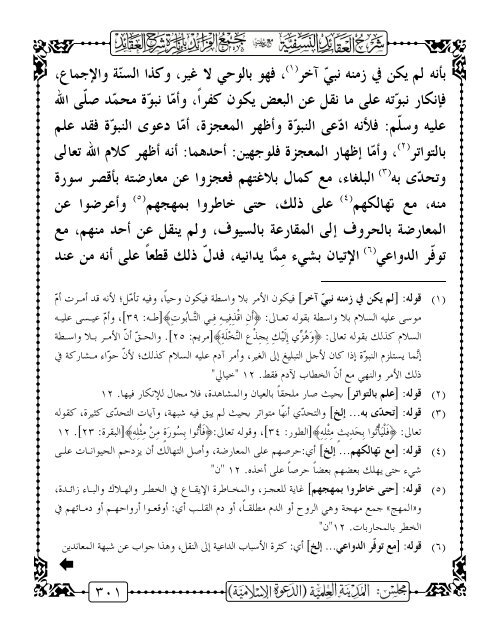 شرح العقائد النسفية مع حاشية جمع الفرائد بإنارة شرح العقائد
بأنه لم يكن في زمنه نبيّ آخر(١)، فهو بالوحي لا غير، وكذا السنّة والإجماع،
فإنكار نبوّته على ما نقل عن البعض يكون كفراً، وأمّا نبوّة محمّد صلّى الله
عليه وسلّم: فلأنه ادّعى النبوّة وأظهر المعجزة، أمّا دعوى النبوّة فقد علم
بالتواتر(٢)، وأمّا إظهار المعجزة فلوجهين: أحدهما: أنه أظهر كلام الله تعالى
وتحدّى به(٣) البلغاء، مع كمال بلاغتهم فعجزوا عن معارضته بأقصر سورة
منه، مع تهالكهم(٤) على ذلك، حتى خاطروا بمهجهم(٥) وأعرضوا عن
المعارضة بالحروف إلى المقارعة بالسيوف، ولم ينقل عن أحد منهم، مع
توفّر الدواعي(٦) الإتيان بشيء مِمَّا يدانيه، فدلّ ذلك قطعاً على أنه من عند
(١) قوله: [لم يكن في زمنه نبيّ آخر] فيكون الأمر بلا واسطة فيكون وحياً، وفيه تأمّل؛ لأنه قد أمرت أمّ
موسى عليه السلام بلا واسطة بقوله تعالى: ﴿أَنِ اقْذِفِيهِ فِي التَّابُوتِ﴾[طه: ٣٩]، وأمّ عيسى عليه
السلام كذلك بقوله تعالى: ﴿وَهُزِّي إِلَيْكِ بِجِذْعِ النَّخْلَةِ﴾[مريم: ٢٥]. والحقّ أنّ الأمر بلا واسطة
إنّما يستلزم النبوّة إذا كان لأجل التبليغ إلى الغير، وأمر آدم عليه السلام كذلك؛ لأنّ حوّاء مشاركة في
ذلك الأمر والنهي مع أنّ الخطاب لآدم فقط. ١٢ "خيالي"
(٢) قوله: [علم بالتواتر] بحيث صار ملحقاً بالعيان والمشاهدة، فلا مجال للإنكار فيها. ١٢
(٣) قوله: [تحدّى به... إلخ] والتحدّي أنها متواتر بحيث لم يبق فيه شبهة، وآيات التحدّي كثيرة، كقوله
تعالى: ﴿فَلْيَأْتُوا بِحَدِيثٍ مِثْلِهِ﴾[الطور: ٣٤]، وقوله تعالى:﴿فَأْتُوا بِسُورَةٍ مِنْ مِثْلِهِ﴾[البقرة: ٢٣]. ١٢
(٤) قوله: [مع تهالكهم... إلخ] أي:حرصهم على المعارضة، وأصل التهالك أن يزدحم الحيوانات على
شيء حتى يهلك بعضهم بعضاً حرصاً على أخذه. ١٢ "ن"
(٥) قوله: [حتى خاطروا بمهجهم] غاية للعجز، والمخاطرة الإيقاع في الخطر والهلاك والباء زائدة،
و«المهج» جمع مهجة وهي الروح أو الدم مطلقاً، أو دم القلب أي: أوقعوا أرواحهم أو دمائهم في
الخطر بالمحاربات. ١٢"ن"
(٦) قوله: [مع توفّر الدواعي... إلخ] أي: كثرة الأسباب الداعية إلى النقل، وهذا جواب عن شبهة المعاندين
مجلس: المدينة العلمية (الدعوة الإسلامية)
٣٠١